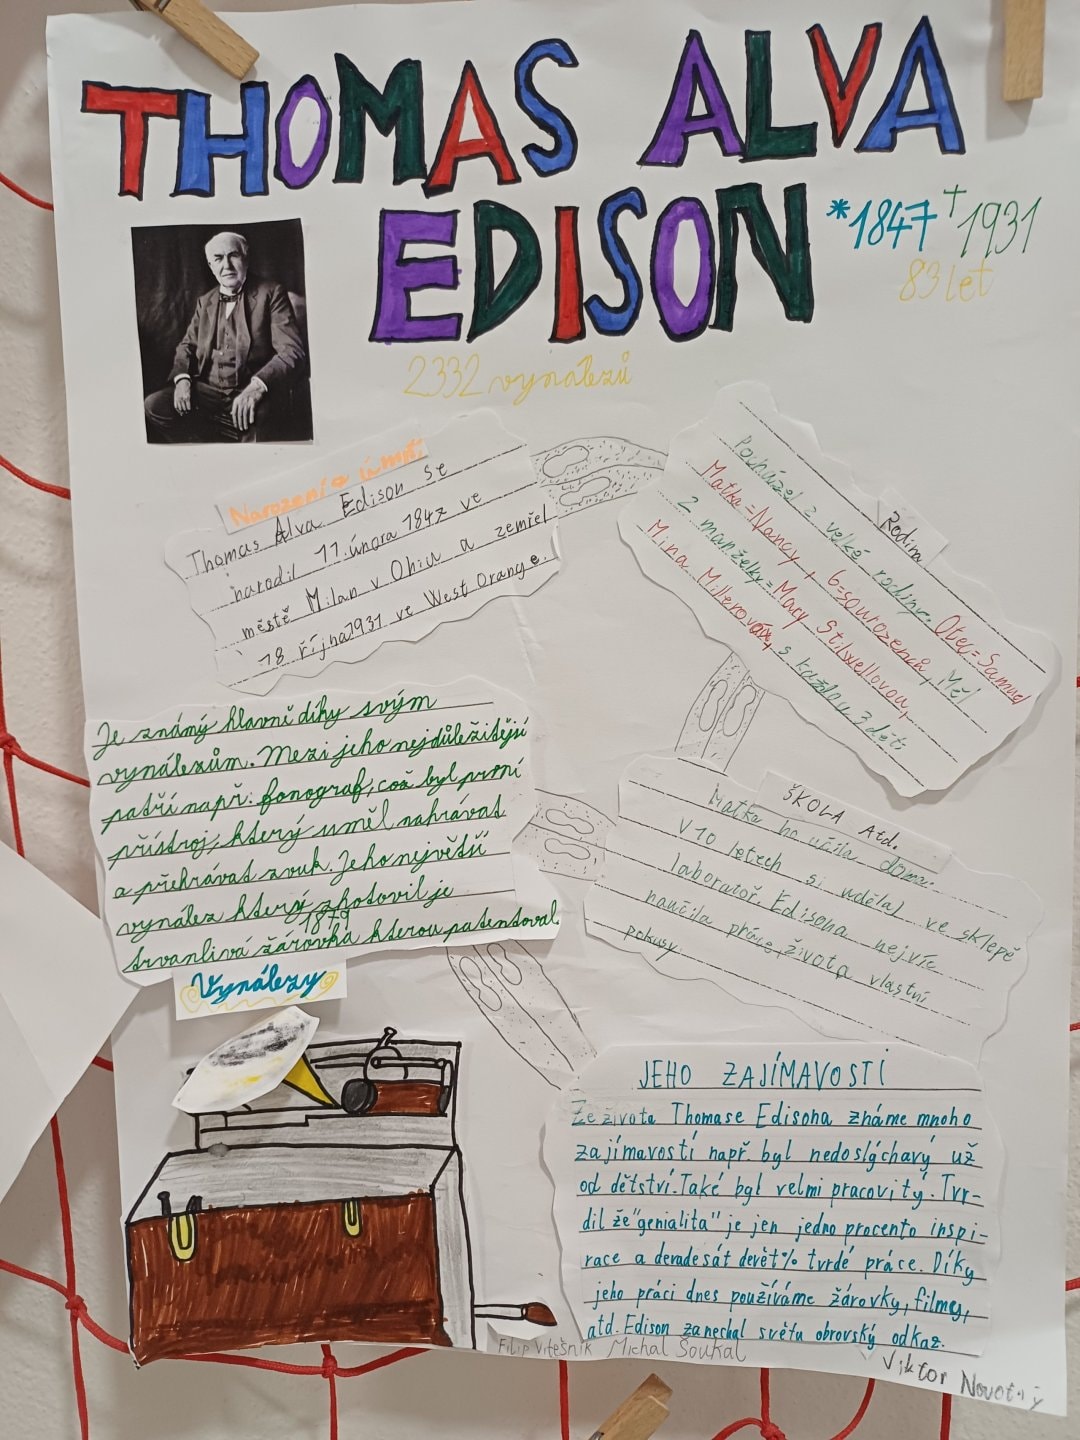 THOMAS ALVA
EDISON
*1847 †1931
83 let
2332 vynálezů
Narození a úmrtí
Thomas Alva Edison se
narodil 11. února 1847 ve
městě Milan v Ohiu a zemřel
18 října 1931 ve West Orange.
Rodina
Pocházel z velké rodiny. Otec=Samuel
Matka=Nancy, 6=sourozenců, Měl
2 manželky=Mary Stilwellovou,
Mina Millerová, s každou 3 děti
Je známý hlavně díky svým
vynálezům. Mezi jeho nejdůležitější
patří např: fonograf, což byl první
přístroj, který uměl nahrávat
a přehrávat zvuk. Jeho největší
vynález který zhotovil je
1879
trvanlivá žárovka kterou patentoval
Vynálezy
ŠKOLA Atd.
Matka ho učila doma.
V 10 letech si udělal ve sklepě
laboratoř. Edisona nejvíc
naučila práce, života vlastní
pokusy
JEHO ZAJÍMAVOSTI
Ze života Thomase Edisona známe mnoho
zajímavostí např. byl nedoslýchavý už
od dětství. Také byl velmi pracovitý. Tvr-
dil že "genialita" je jen jedno procento inspi-
race a devadesát devět % tvrdé práce. Díky
jeho práci dnes používáme žárovky, filmy,
atd. Edison zanechal světu obrovský odkaz.
Filip Vitešník Michal Soukal
Viktor Novotný